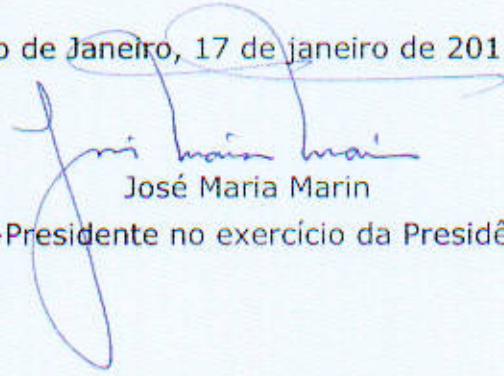 o de Janeiro, 17 de janeiro de 201
José Maria Marin
-Presidente no exercício da Presidê